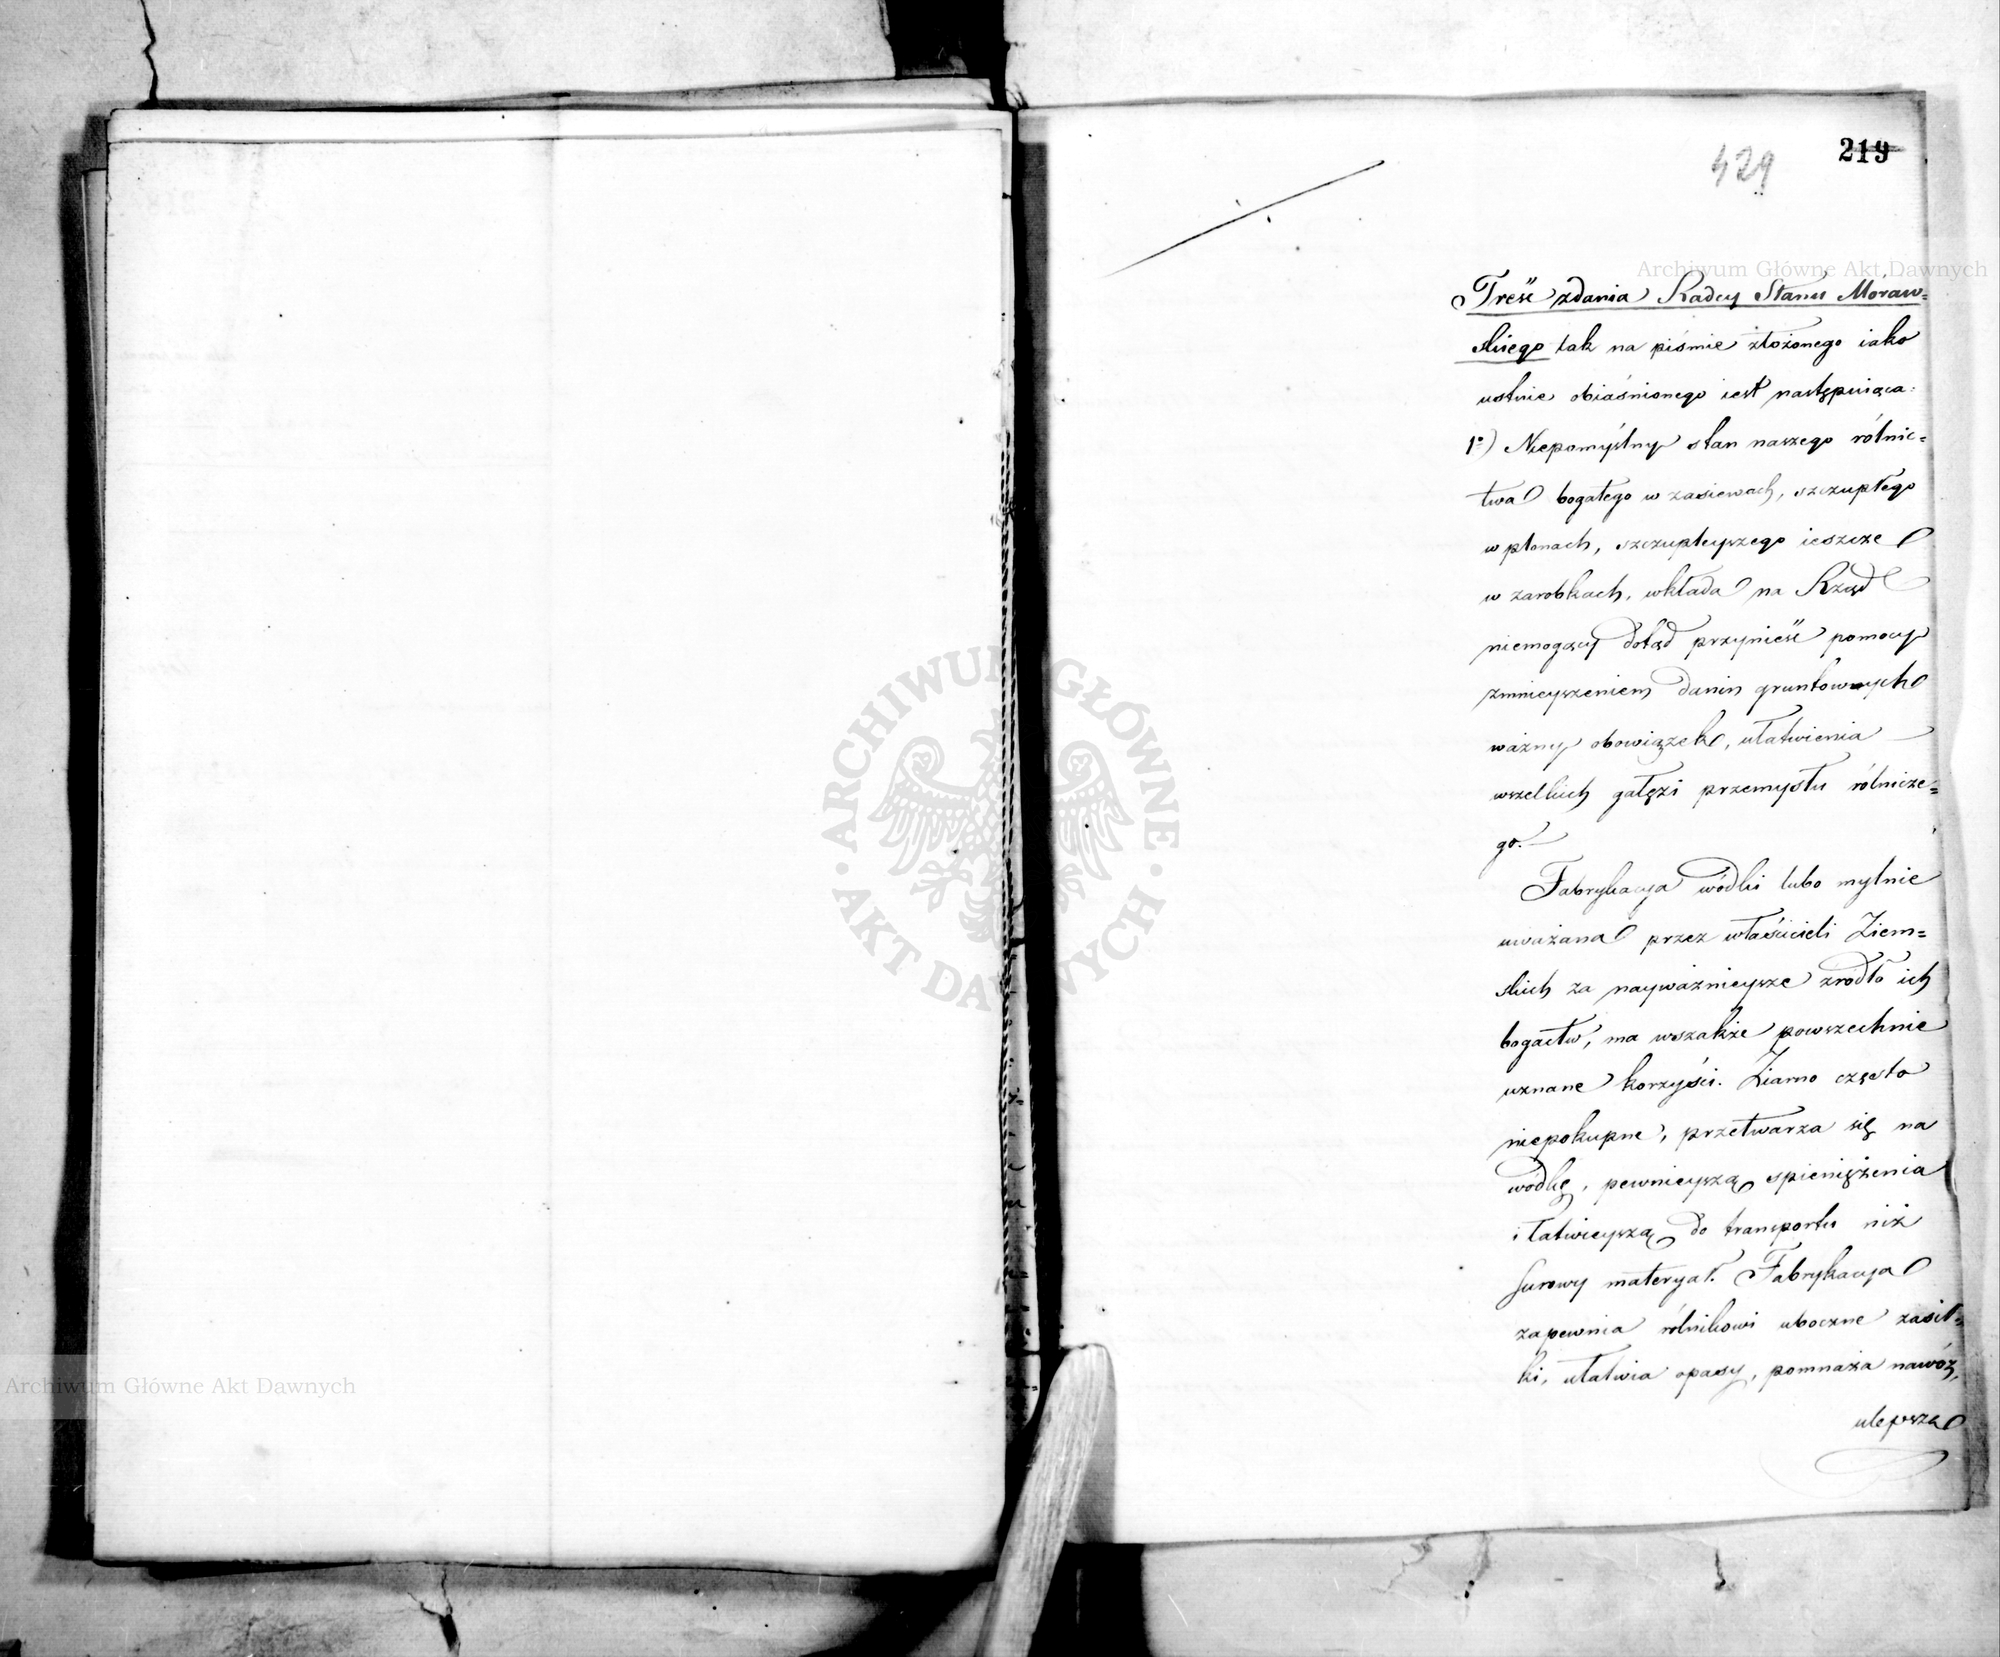 429
219
Treść zdania Radcy Stanu Moraw=
skiego tak na piśmie złożonego iako
ustnie obiaśnionego iest następuiąca:
1º) Niepomyślny stan naszego rólnic=
twa bogatego w zasiewach, szczupłego
w plonach, szczupleyszego ieszcze
w zarobkach, wkłada na Rząd
niemogący dotąd przynieść pomocy
zmnieyszeniem danin gruntowych
ważny obowiązek, ułatwienia
wszelkich gałęzi przemysłu rólnicze=
go.
Fabrykacya wódki lubo mylnie
uważana przez właścicieli Ziem=
skich za nayważnieysze źrodło ich
bogactw, ma wszakże powszechnie
uznane korzyści. Ziarno często
niepokupne, przetwarza się na
wódkę, pewnieyszą spieniężenia
i łatwieyszą do transportu niż
surowy materyał. Fabrykacya
zapewnia rólnikowi uboczne zasił=
ki, ułatwia opasy, pomnaża nawóz,
ulepsza
Archiwum Główne Akt Dawnych
ARCHIWUM GŁÓWNE · AKT DAWNYCH ·
Archiwum Główne Akt Dawnych